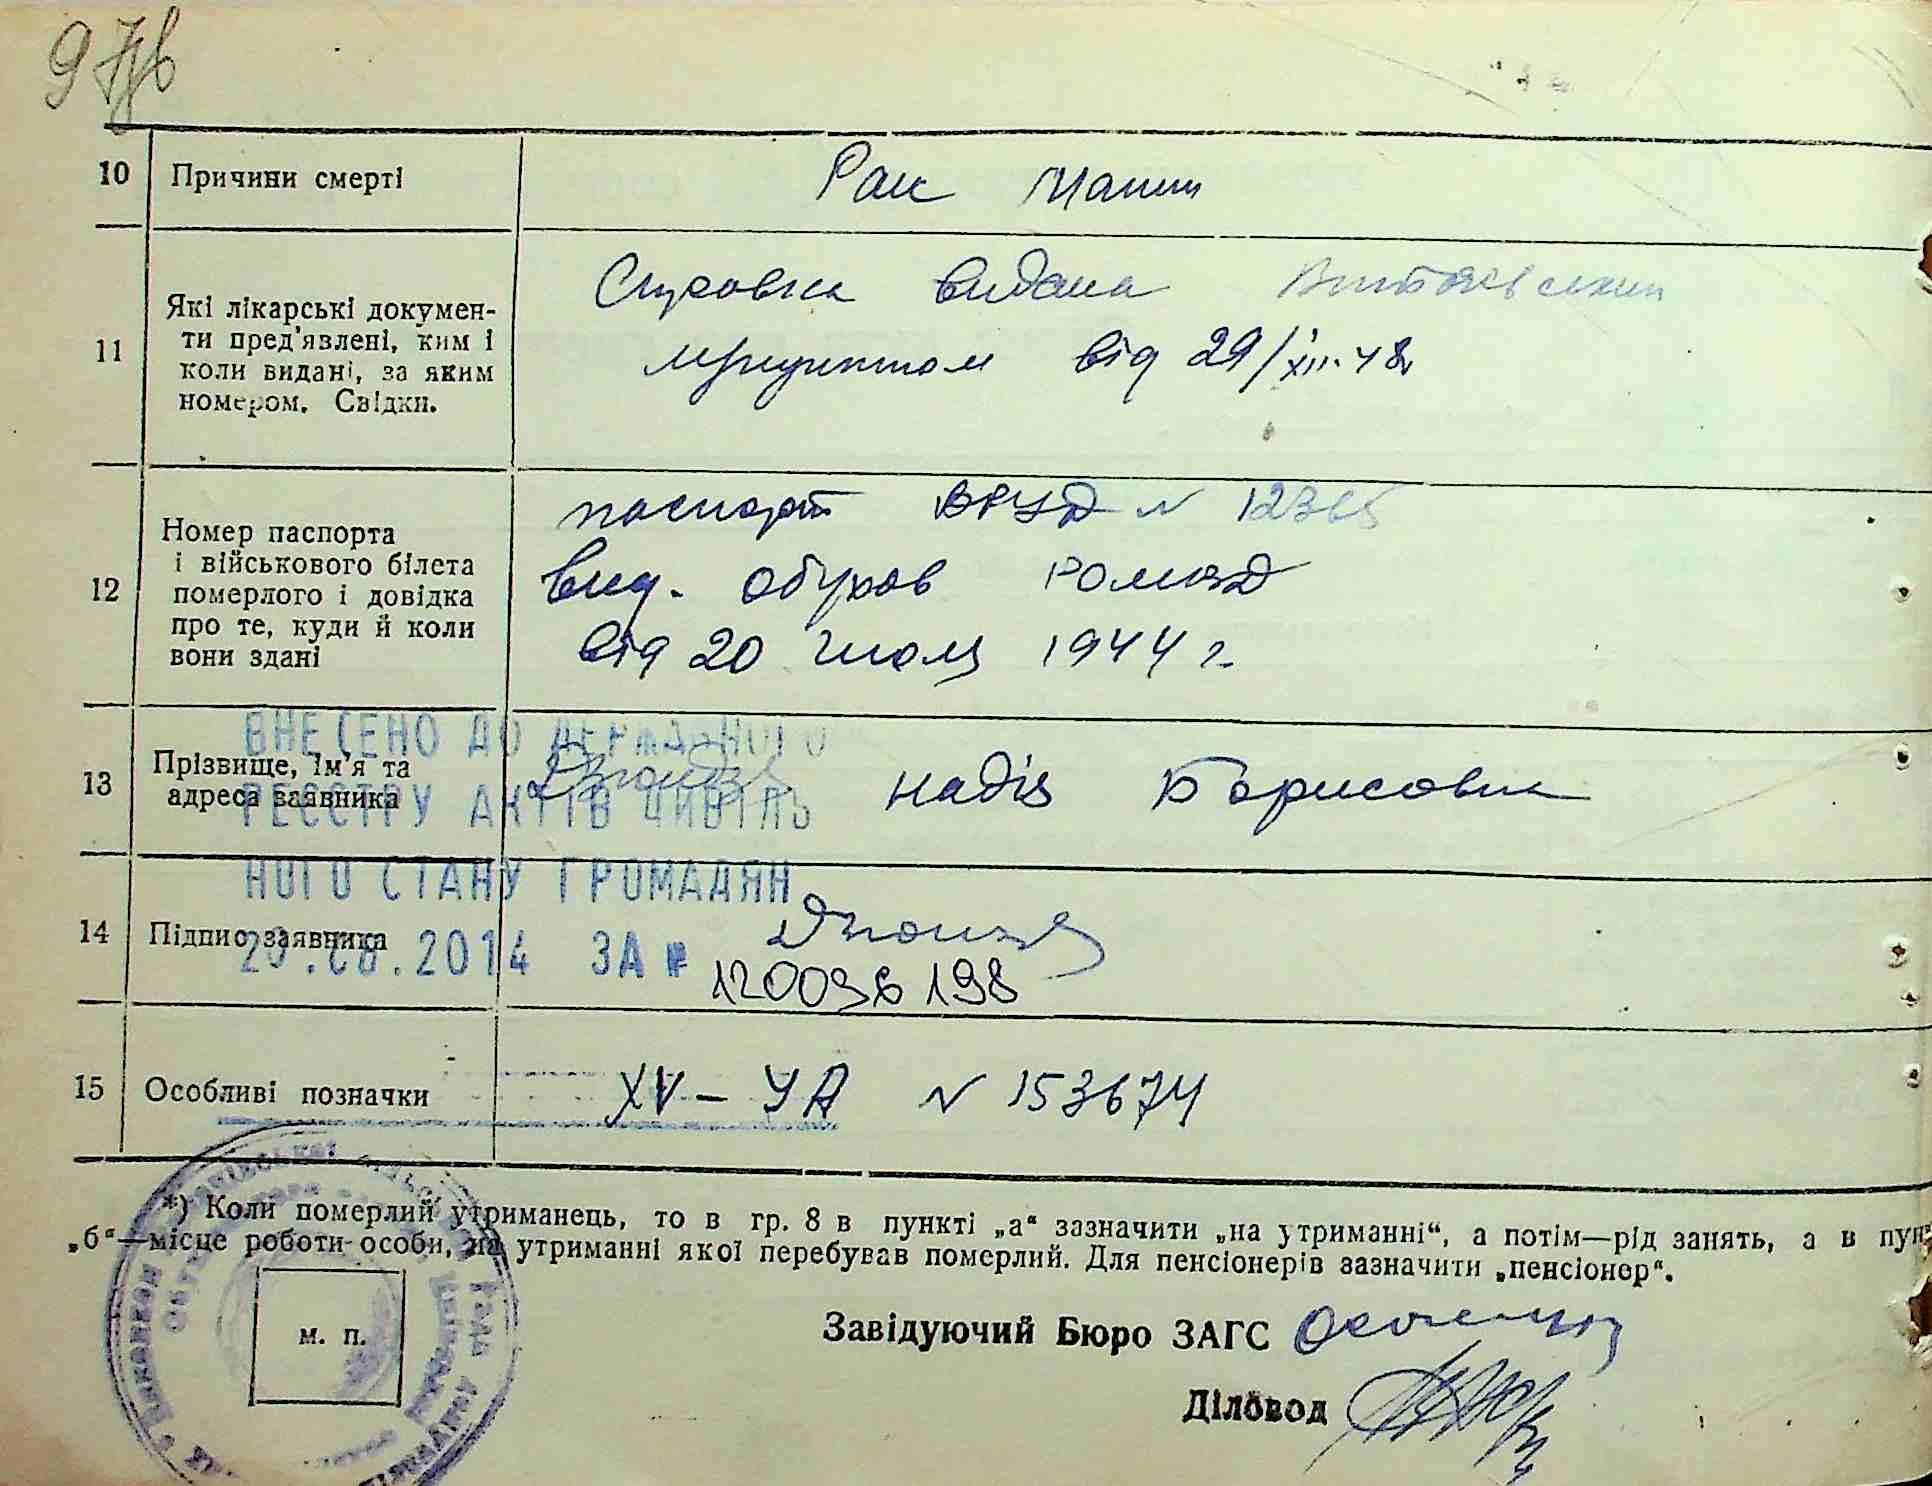 97зв
10 Причини смерті
Рак матки
11 Які лікарські докумен-
ти пред'явлені, ким і
коли видані, за яким
номером. Свідки.
Справка видана
від 29/XII-48
12 Номер паспорта
і військового білета
померлого і довідка
про те, куди й коли
вони здані
паспорт N
вид. Обухов
від 20 1944 г.
ВНЕСЕНО ДО ДЕРЖАВНОГО
13 Прізвище, ім'я та
адреса заявника
Надія Борисовна
РЕЄСТРУ АКТІВ ЦИВІЛЬ
НОГО СТАНУ ГРОМАДЯН
14 Підпис заявника
20.08.2014 ЗА №
120096198
15 Особливі позначки
XV – УА N 153674
*) Коли померлий утриманець, то в гр. 8 в пункті „а“ зазначити „на утриманні“, а потім—рід занять, а в пун
„б“—місце роботи особи, на утриманні якої перебував померлий. Для пенсіонерів зазначити „пенсіонер“.
м. п.
Завідуючий Бюро ЗАГС
Діловод